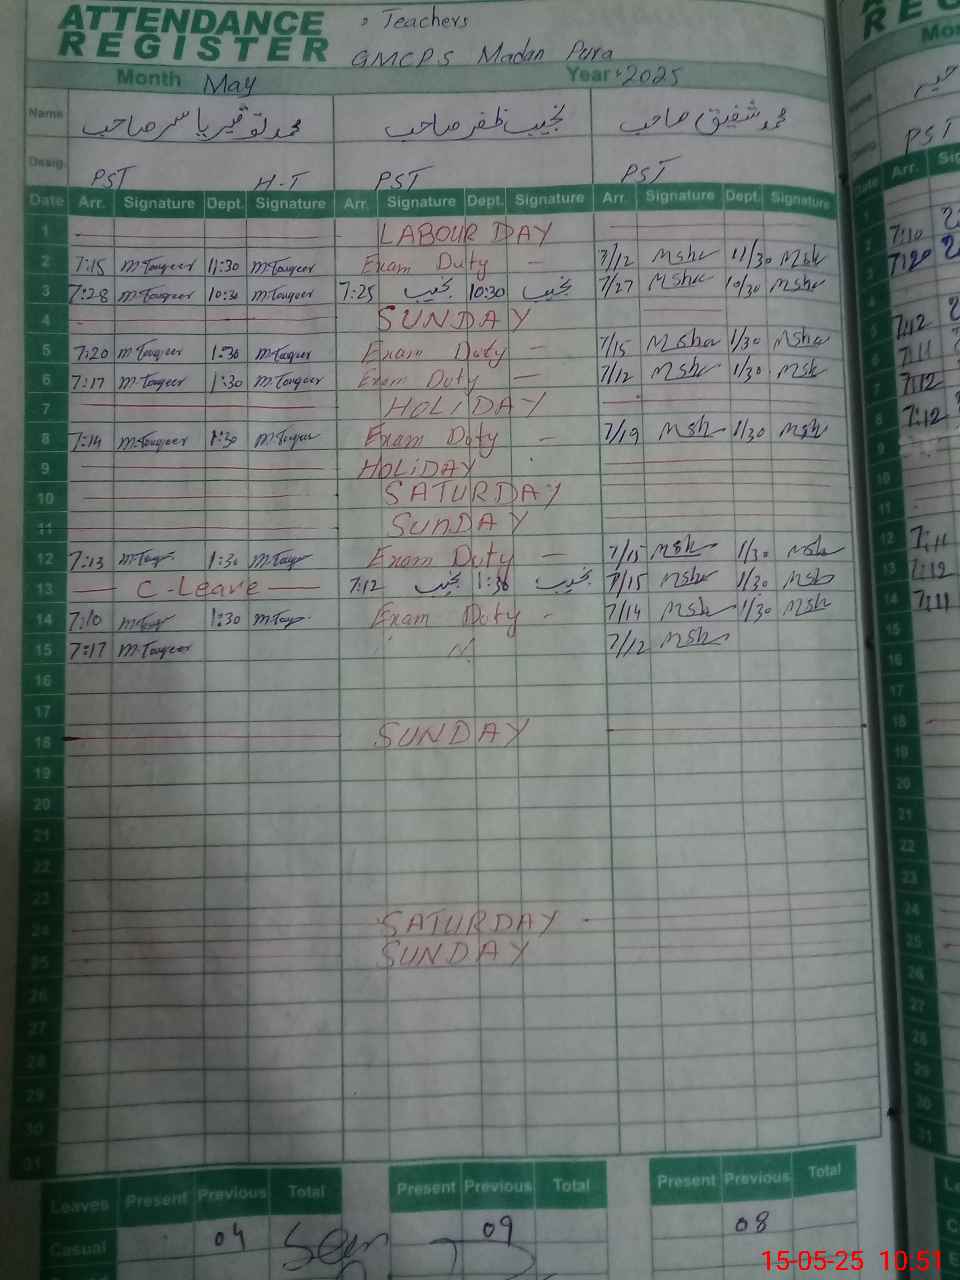 ATTENDANCE REGISTER
Teachers
GMCPS Madan Pura
Month May Year 2025
Name محمد توقیر یاسر صاحب نجیب ظفر صاحب محمد شفیق صاحب
Desig. PST H-T PST PST
Date Arr. Signature Dept. Signature Arr. Signature Dept. Signature Arr. Signature Dept. Signature
1 LABOUR DAY
2 7:15 M.Touqeer 11:30 M.Touqeer Exam Duty — 7/12 Msha 11/30 Msha
3 7:28 M.Touqeer 10:30 M.Touqeer 7:25 نجیب 10:30 نجیب 7/27 Msha 10/30 Msha
4 SUNDAY
5 7:20 M.Touqeer 1:30 M.Touqeer Exam Duty — 7/15 Msha 1/30 Msha
6 7:17 M.Touqeer 1:30 M.Touqeer Exam Duty — 7/12 Msha 1/30 Msha
7 HOLIDAY
8 7:14 M.Touqeer 1:30 M.Touqeer Exam Duty — 7/19 Msha 1/30 Msha
9 HOLIDAY
10 SATURDAY
11 SUNDAY
12 7:13 1:30 Exam Duty — 7/15 Msha 1/30 Msha
13 C-Leave 7:12 نجیب 1:30 نجیب 7/15 Msha 1/30 Msha
14 7:10 1:30 Exam Duty - 7/14 Msha 1/30 Msha
15 7:17 M.Touqeer 7/12 Msha
16
17
18 SUNDAY
19
20
21
22
23
24 SATURDAY
25 SUNDAY
26
27
28
29
30
31
Leaves Present Previous Total Present Previous Total Present Previous Total
Casual 04 09 08
15-05-25 10:51
PST
Date Arr.
7:10
7:20
7:12
7:11
7:12
7:12
7:11
7:12
7:11